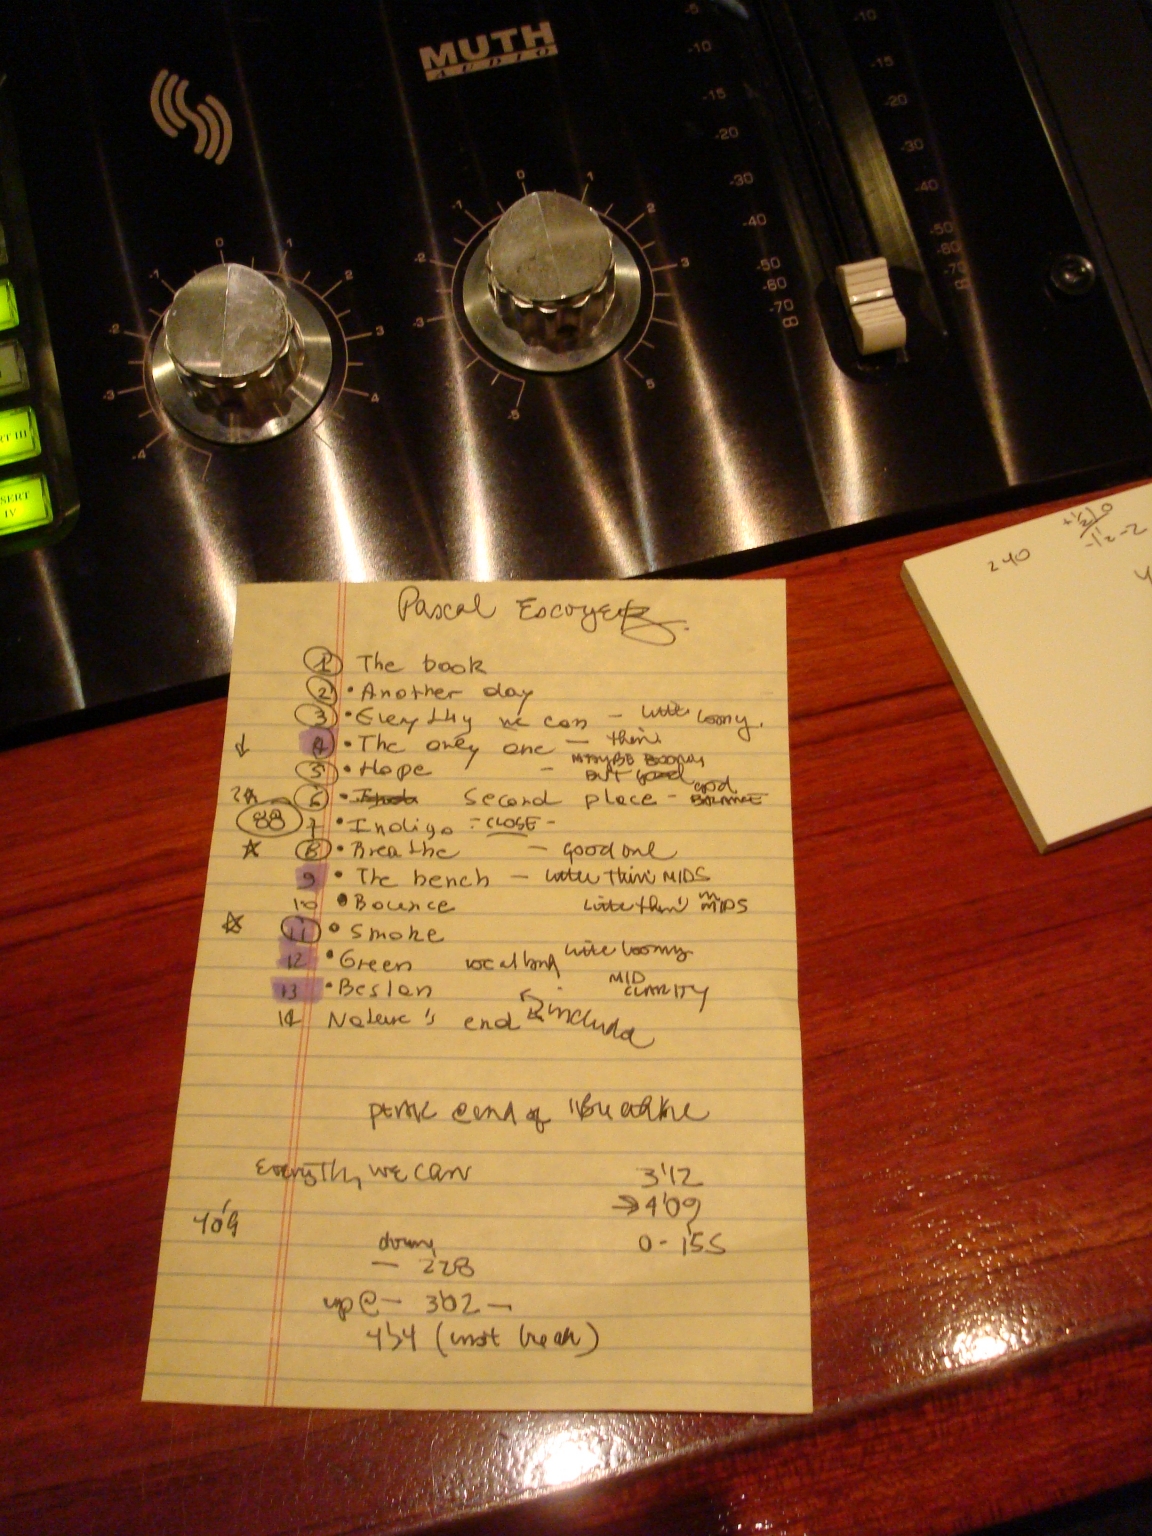 MUTH
AUDIO
-5
-10
-15
-20
-30
-40
-50
-60
-70
-10
-15
-20
-30
-40
-50
-60
-70
0
-1
1
-2
2
-3
3
-4
4
0
-1
1
-2
2
-3
3
-5
5
SERT
IV
240
Pascal
1 The book
2 • Another day
3 • Everythg we can - little boomy.
4 • The only one - thin
5 • Hope - MAYBE BOOMY
BUT good
6 • Second place - good
BALANCE
88
7 • Indigo - CLOSE -
8 • Breathe - good one
9 • The bench - little thin MIDS
10 • Bounce little thin MIDS
11 • Smoke
12 • Green little boomy
13 • Beslan MID
CLARITY
14 Nature's end include
peak @ end of "Breathe
Everyth, we can 3'12
→ 4'09
409
0 - 155
down
- 228
up @ - 302 -
434